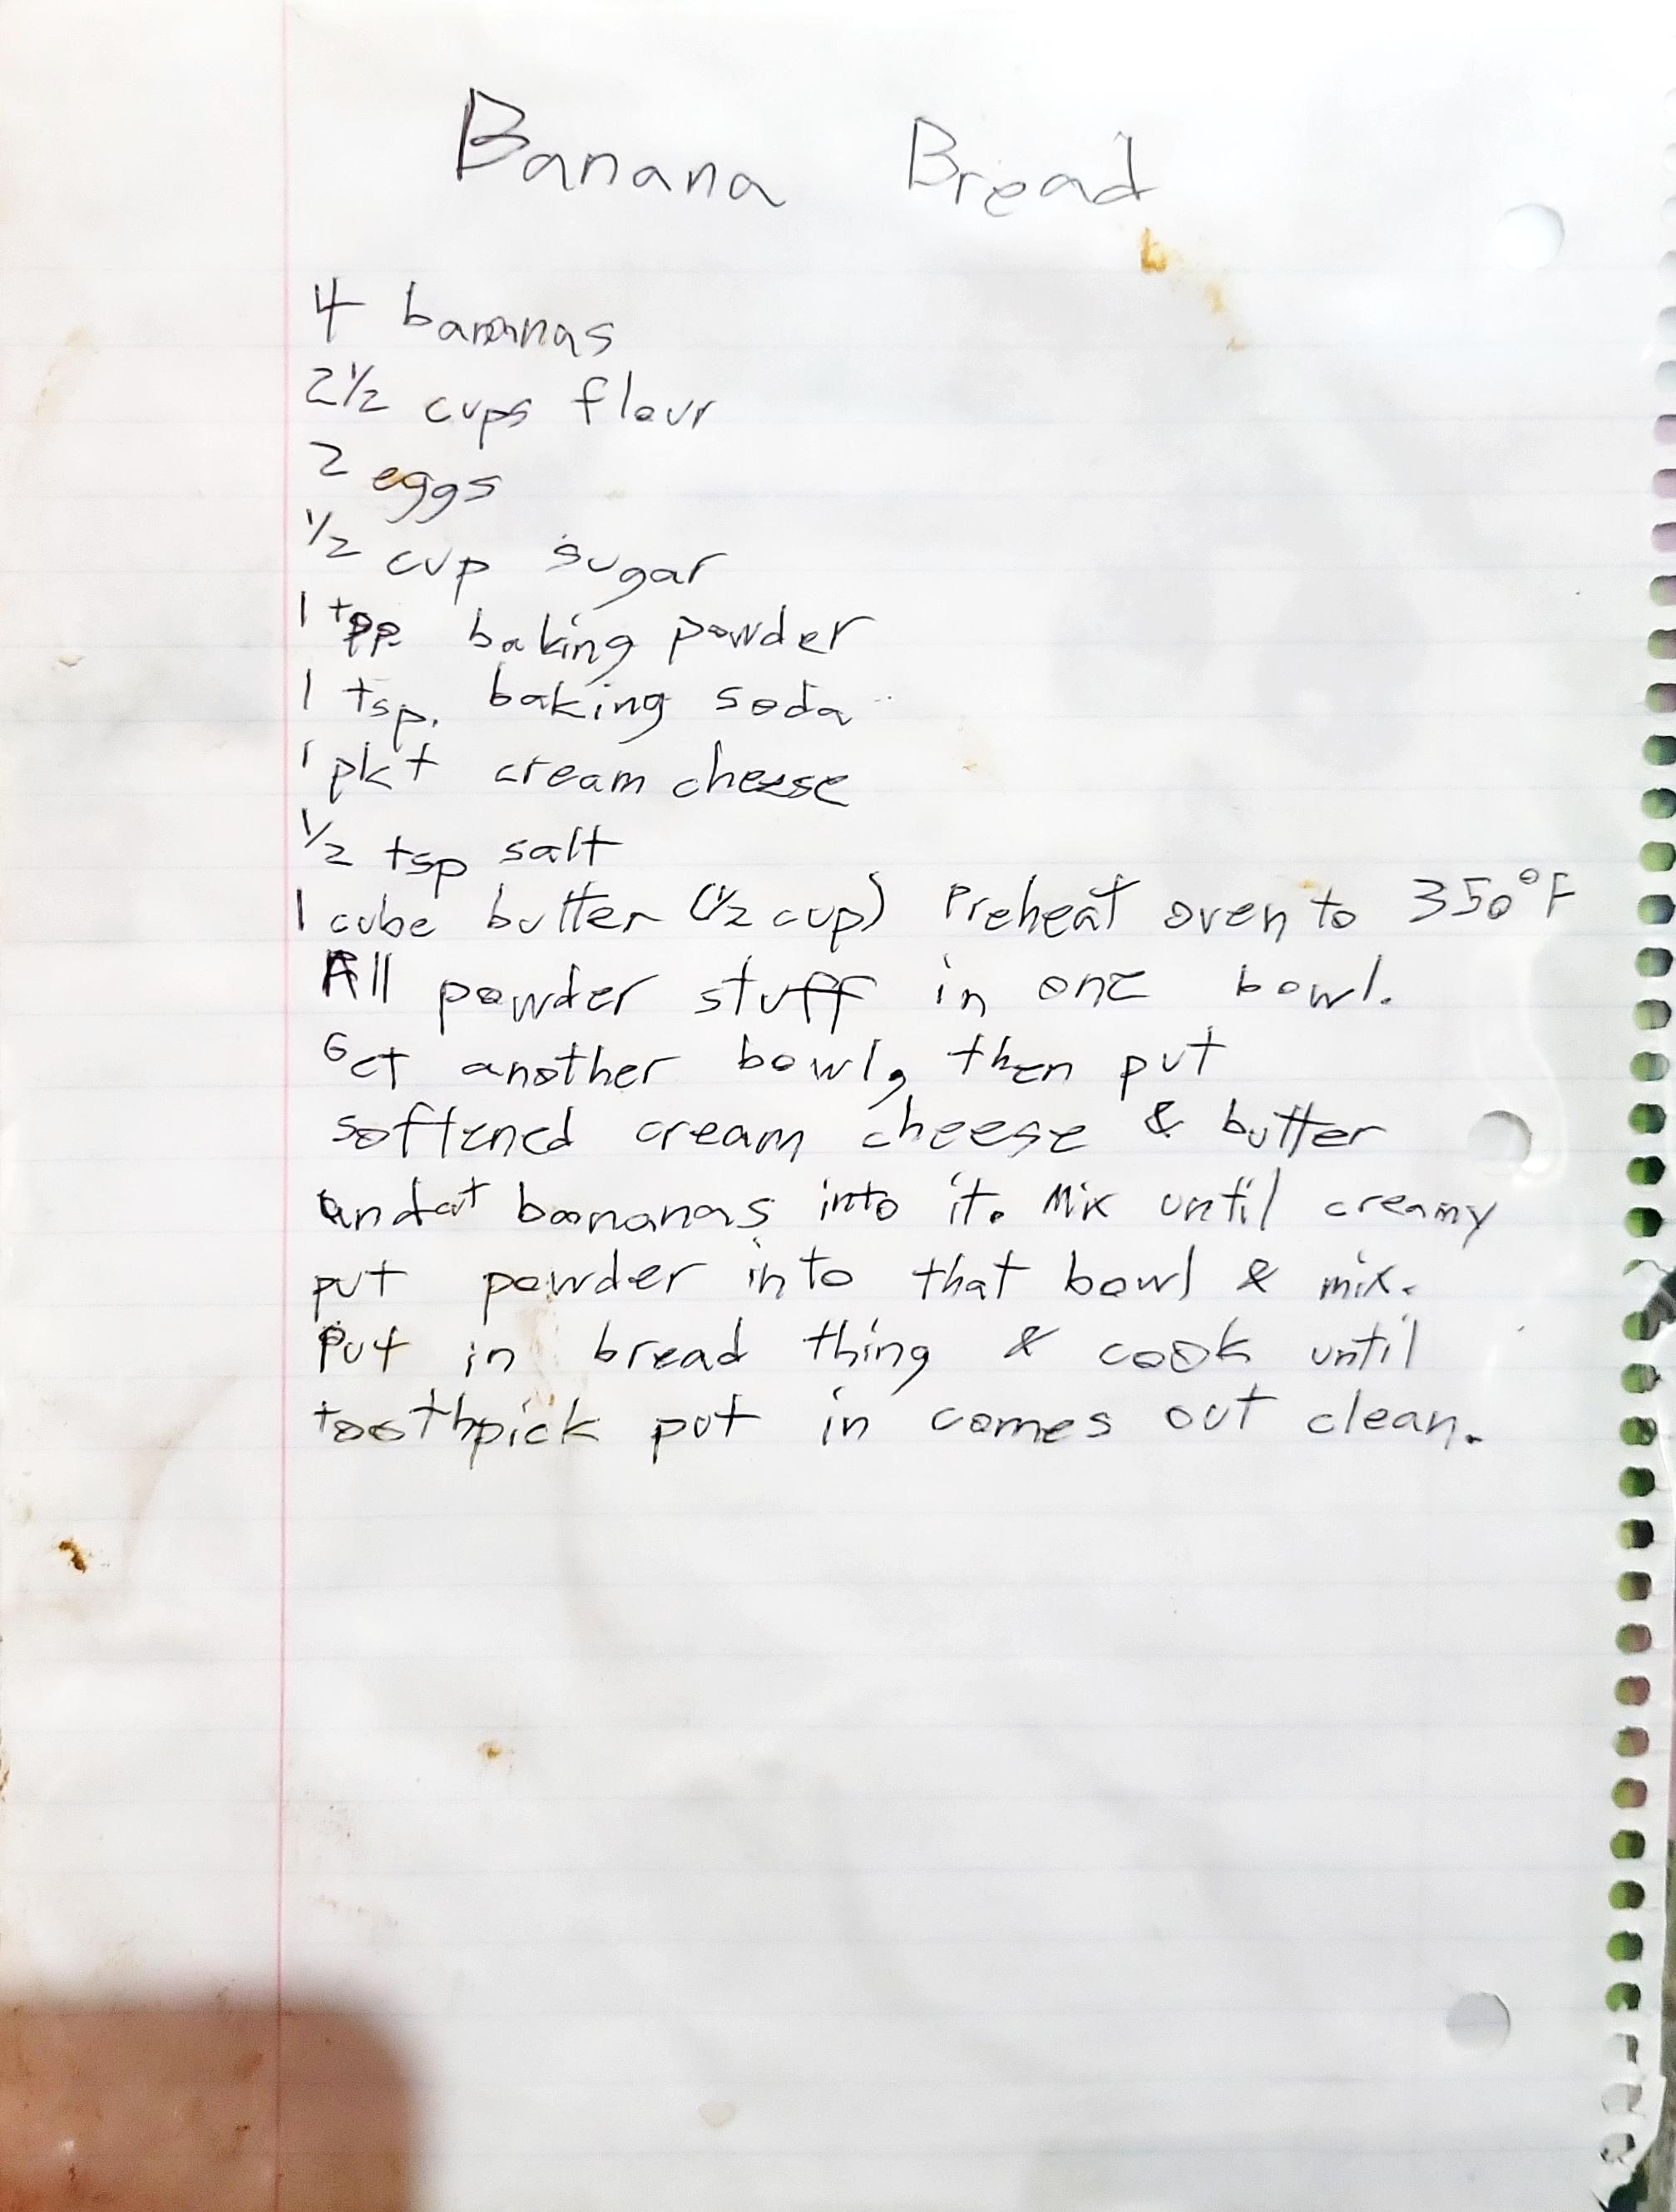 Banana Bread
4 bananas
2 1/2 cups flour
2 eggs
1/2 cup sugar
1 tpp. baking powder
1 tsp. baking soda
1 pkt cream cheese
1/2 tsp salt
1 cube butter (1/2 cup) Preheat oven to 350°F
All powder stuff in one bowl.
Get another bowl, then put
softened cream cheese & butter
and cut bananas into it. Mix until creamy
put powder into that bowl & mix.
Put in bread thing & cook until
toothpick put in comes out clean.